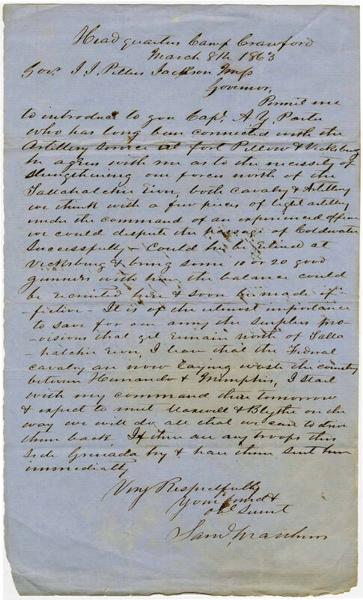 Headquarters Camp Crawford
March 8th 1863
Gov. J J Pettus Jackson Miss
Governor,
Permit me
to introduce to you Capt. A Y
who has long been connected with the
Artillery at fort Pillow & Vicksburg
he agrees with me as to the necessity of
strengthening our force north of the
Tallahatchie River, both cavalry & Artillery
we think with a few pieces of light artillery
under the command of an experienced officer
we could dispute the passage of Coldwater
Successfully - Could he be retired at
Vicksburg & bring some 10 or 20 good
gunners with him the balance could
be recruited here & soon be made ef-
fictive - It is of the utmost importance
to save for our army the surplus pro-
visions that yet remain north of Talla-
hatchie River, I learn that the Federal
cavalry are now laying waste the country
between Hernando & Memphis, I start
with my command there tomorrow
& expect to meet & Blythe on the
way we will do all that we can to drive
them back. If there are any troops this
side Grenada try & have them sent here
immediately
Very Respectfully
Your friend &
obt Servt
Sam